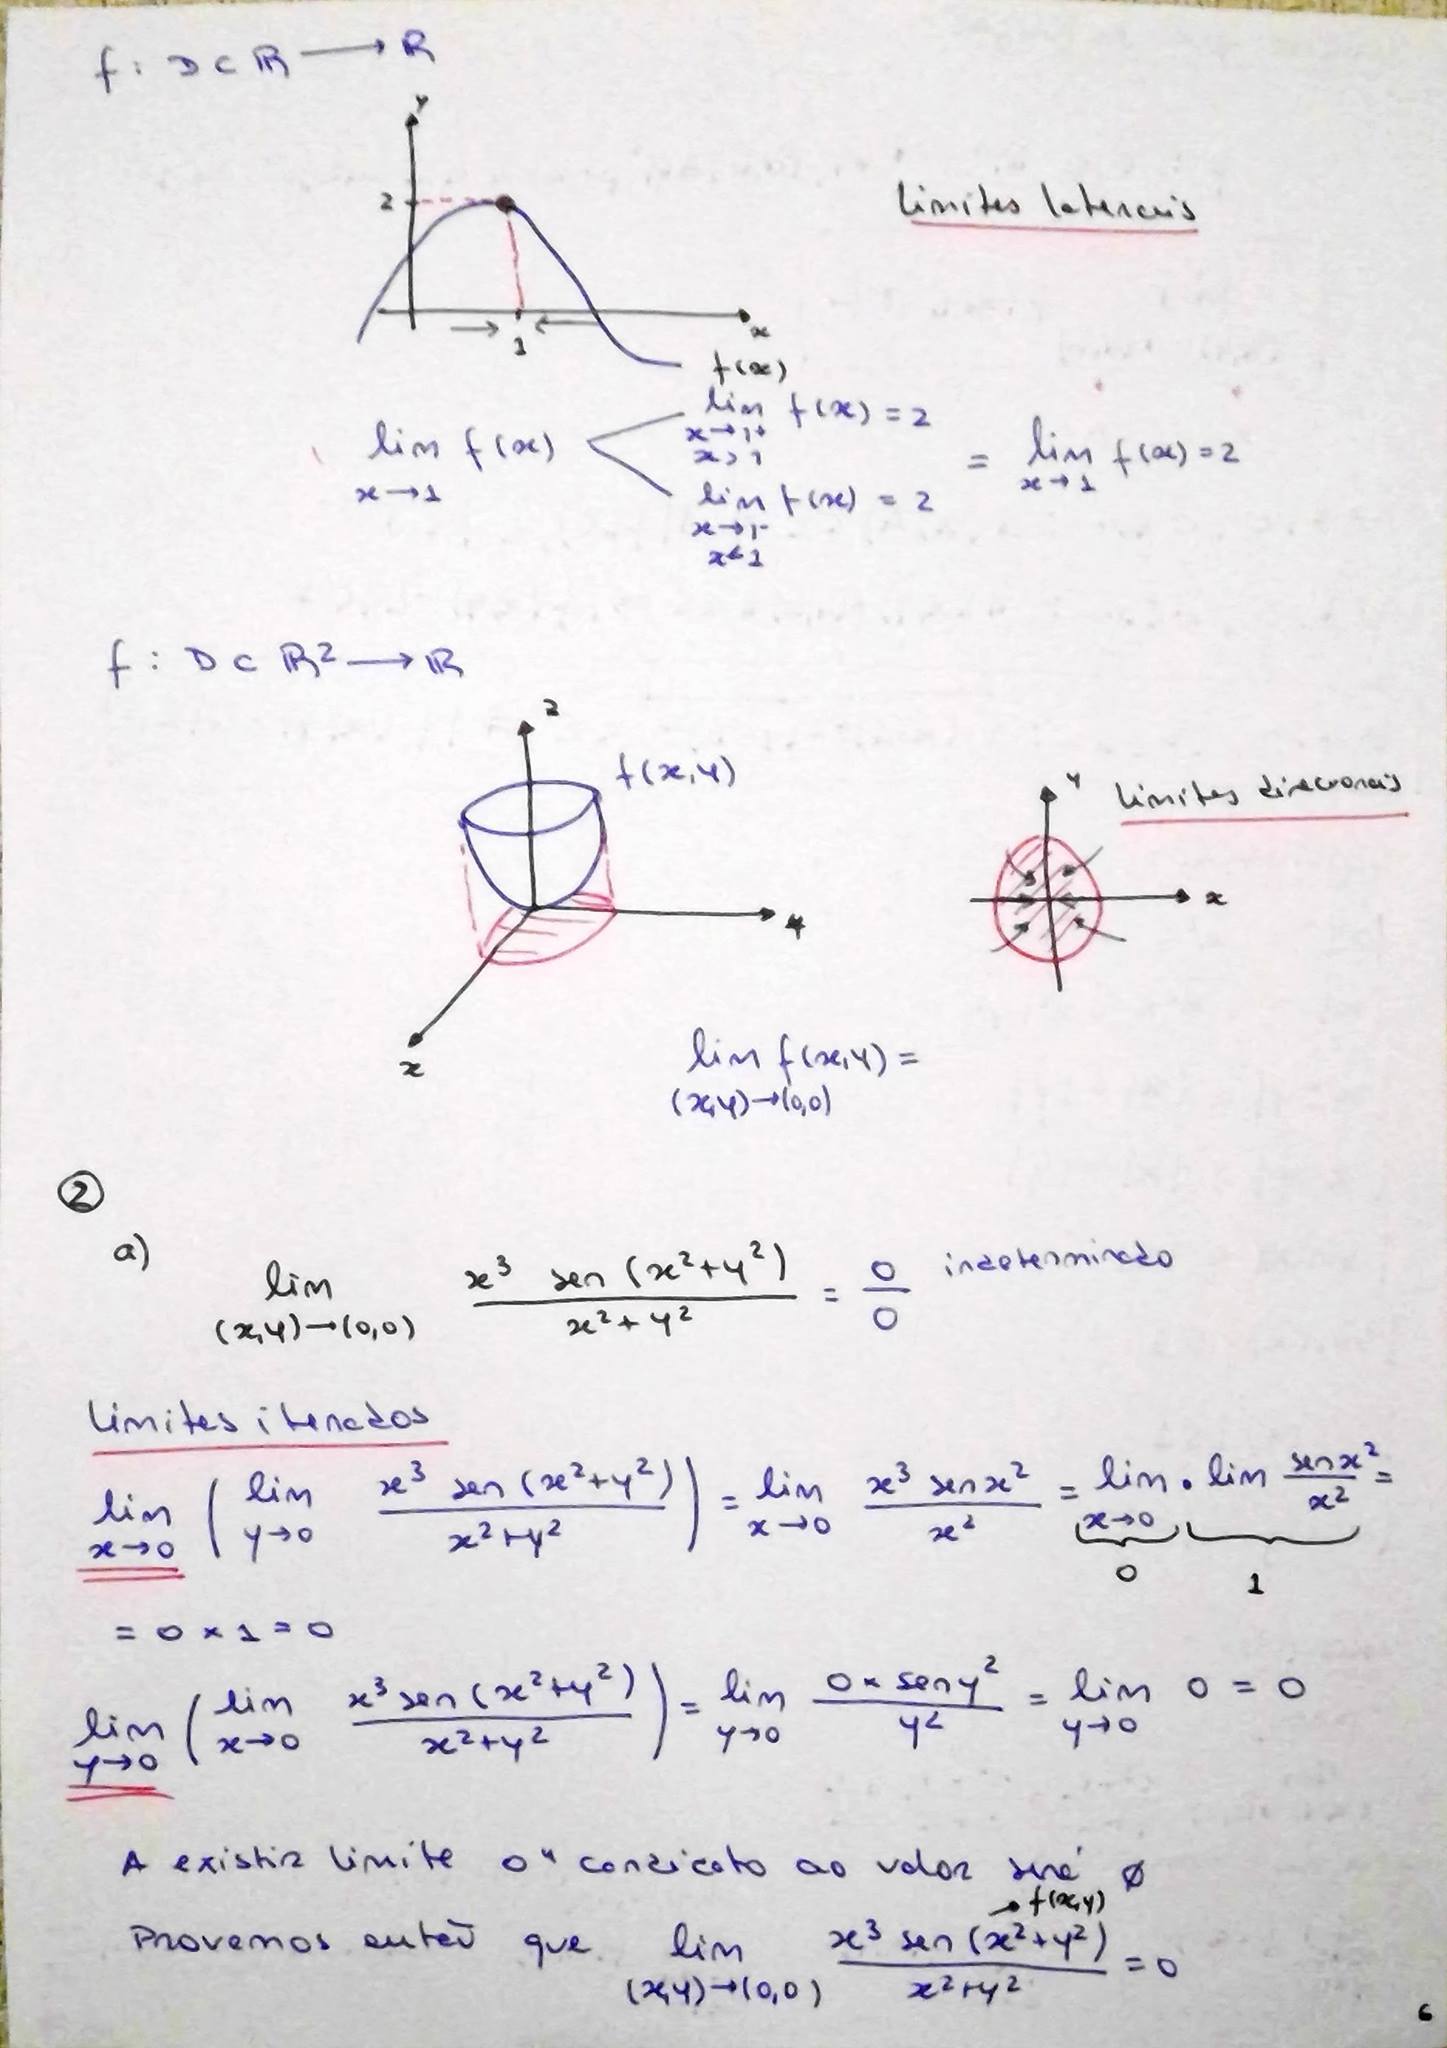 f: D ⊂ ℝ → ℝ
y
2
Limites laterais
1
x
f(x)
lim f(x) x→1
lim f(x) = 2 x→1+ x>1
lim f(x) = 2 x→1- x<1
= lim f(x) = 2 x→1
f: D ⊂ ℝ² → ℝ
z
f(x,y)
y
x
y
Limites direcionais
x
lim f(x,y) =
(x,y)→(0,0)
②
a) lim (x,y)→(0,0) x³ sen (x²+y²) / x²+y² = 0/0 indeterminado
Limites iterados
lim x→0 ( lim y→0 x³ sen (x²+y²) / x²+y² ) = lim x→0 x³ sen x² / x² = lim x→0 . lim sen x² / x² =
0 1
= 0 × 1 = 0
lim y→0 ( lim x→0 x³ sen (x²+y²) / x²+y² ) = lim y→0 0 × sen y² / y² = lim y→0 0 = 0
A existir limite o " candidato ao valor será Ø
→ f(x,y)
Provemos então que lim (x,y)→(0,0) x³ sen (x²+y²) / x²+y² = 0
6